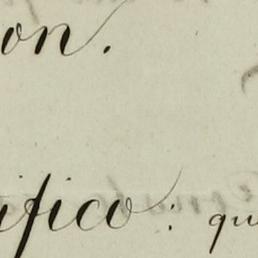 on.
ifico: qu